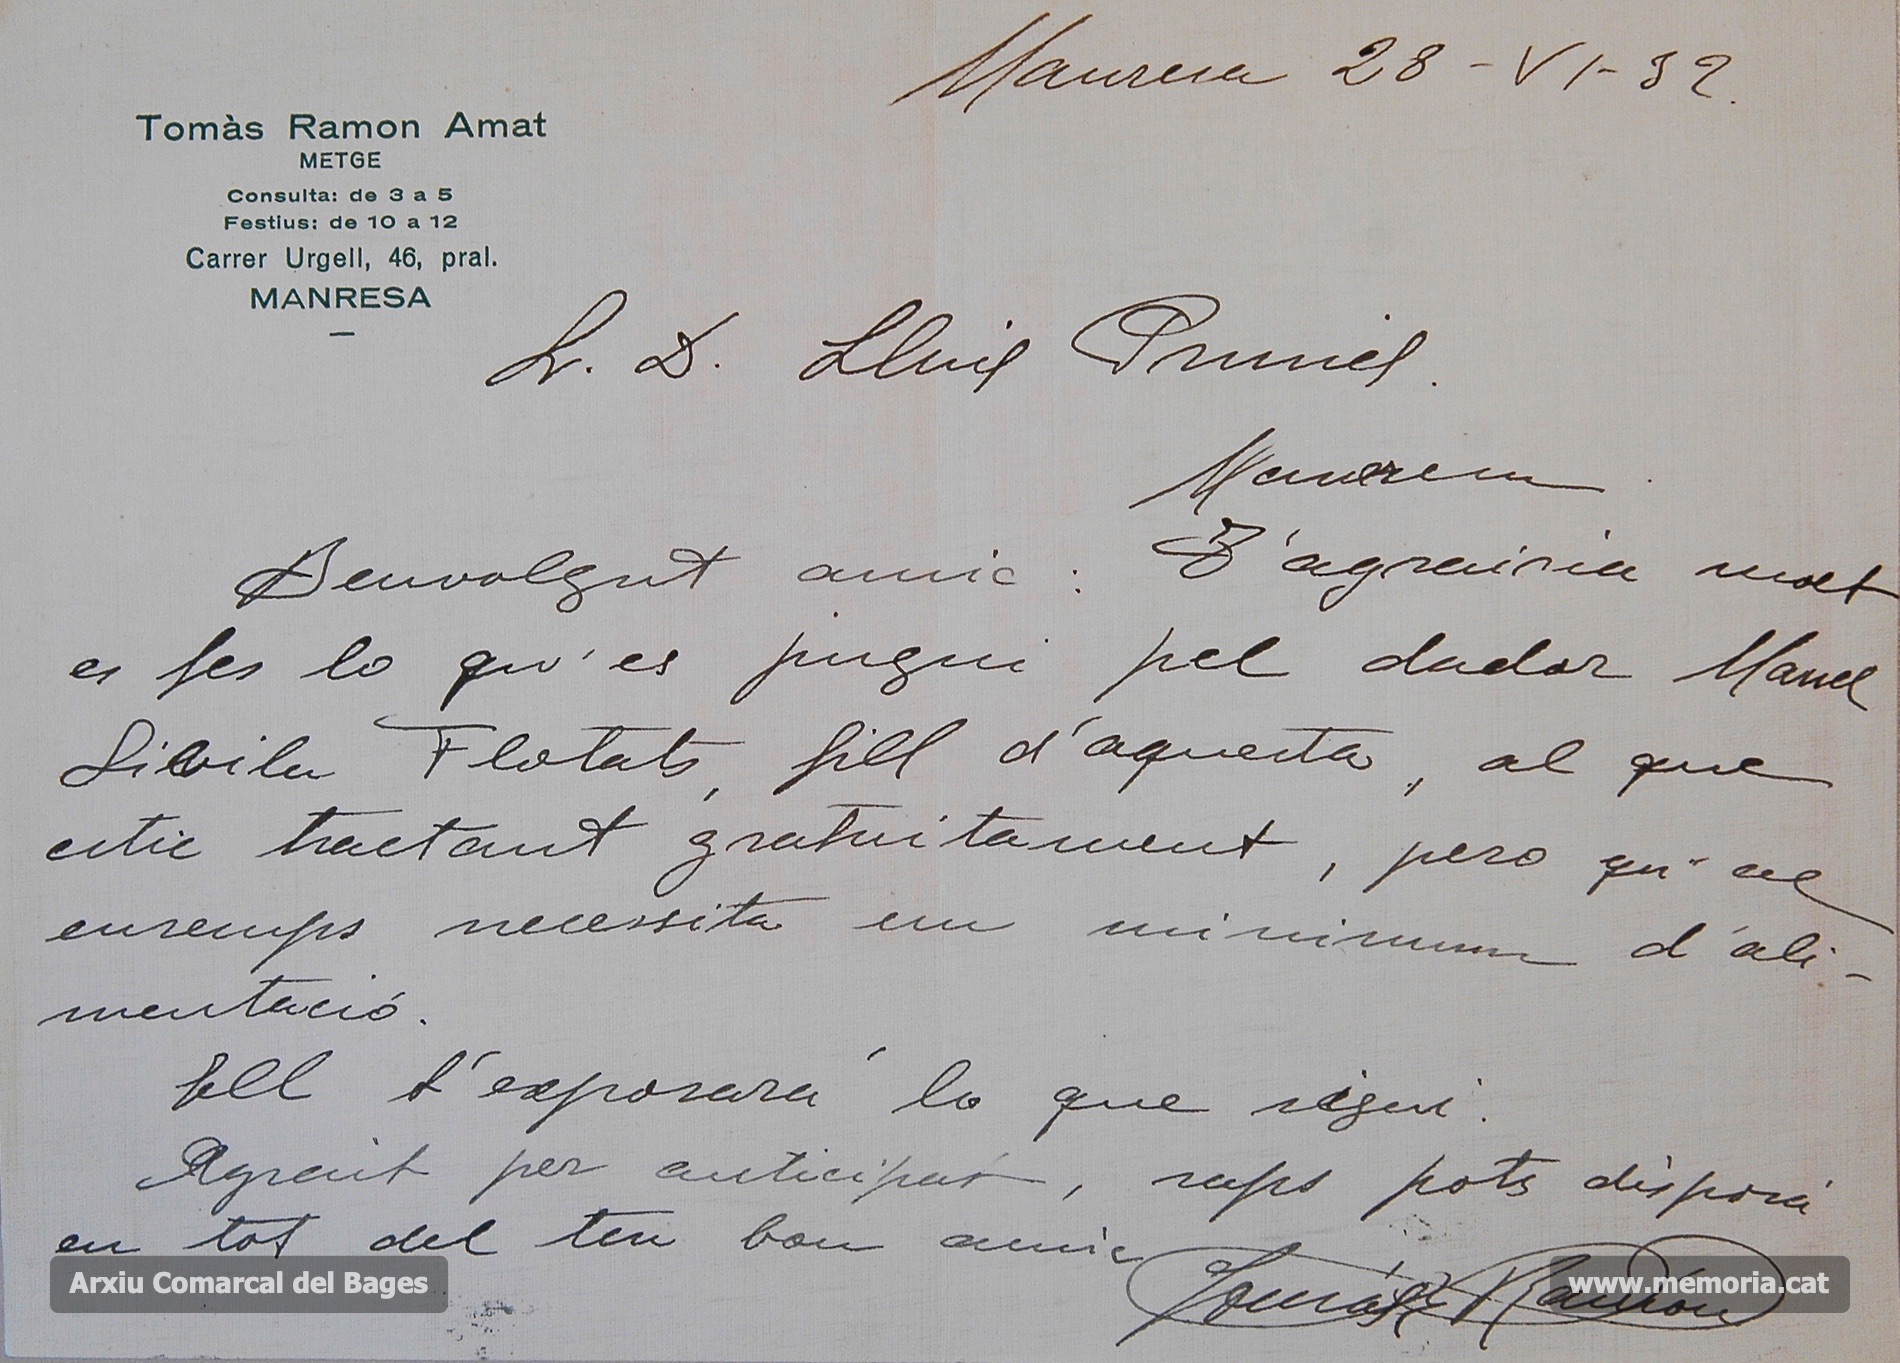 Manresa 28-VI-32.
Tomàs Ramon Amat
METGE
Consulta: de 3 a 5
Festius: de 10 a 12
Carrer Urgell, 46, pral.
MANRESA
Sr. D. Lluis Prunés.
Manresa.
Benvolgut amic: T'agrairia molt
es fes lo qu'es pugui pel dador Manel
Sivila Flotats, fill d'aquesta, al que
estic tractant gratuitament, pero qu'al
ensemps necessita un minimum d'ali-
mentació.
Ell t'exposará lo que sigui.
Agrait per anticipat, saps pots disposá
en tot del teu bon amic
Tomás Ramón
Arxiu Comarcal del Bages
www.memoria.cat